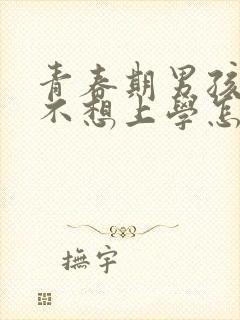 青春期男孩
不想上學怎
撫宇